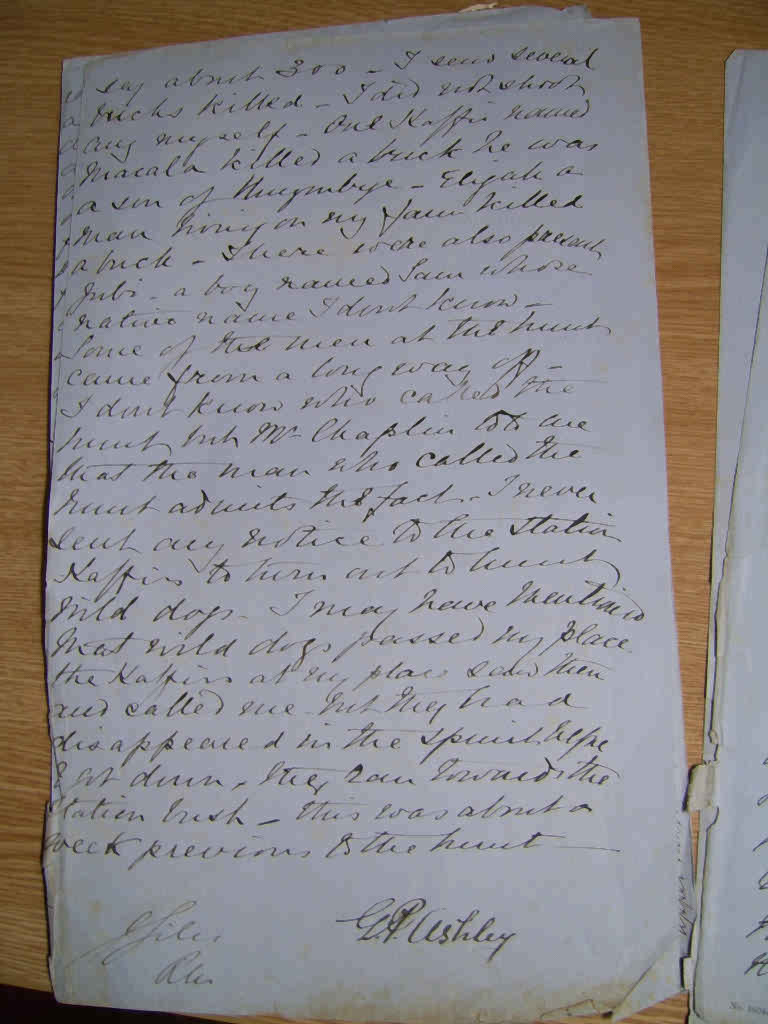 say about 300 - I send several
bucks killed - I did not shoot
any myself - One Kaffir named
Macala killed a buck he was
a son of - Elijah a
man living on my farm killed
a buck - There were also present
Jubi - a boy named Sam whose
native name I dont know -
Some of the men at the hunt
came from a long way off -
I dont know who called the
hunt but Mr Chaplin told me
that the man who called the
hunt admits the fact - I never
sent any notice to the Station
Kaffirs to turn out to hunt
wild dogs - I may have mentioned
that wild dogs passed my place
the Kaffirs at my place saw them
and called me but they had
disappeared in the before
I got down, they ran towards the
station bush - this was about a
week previous to the hunt
G.P. Ashley
J Giles
RM